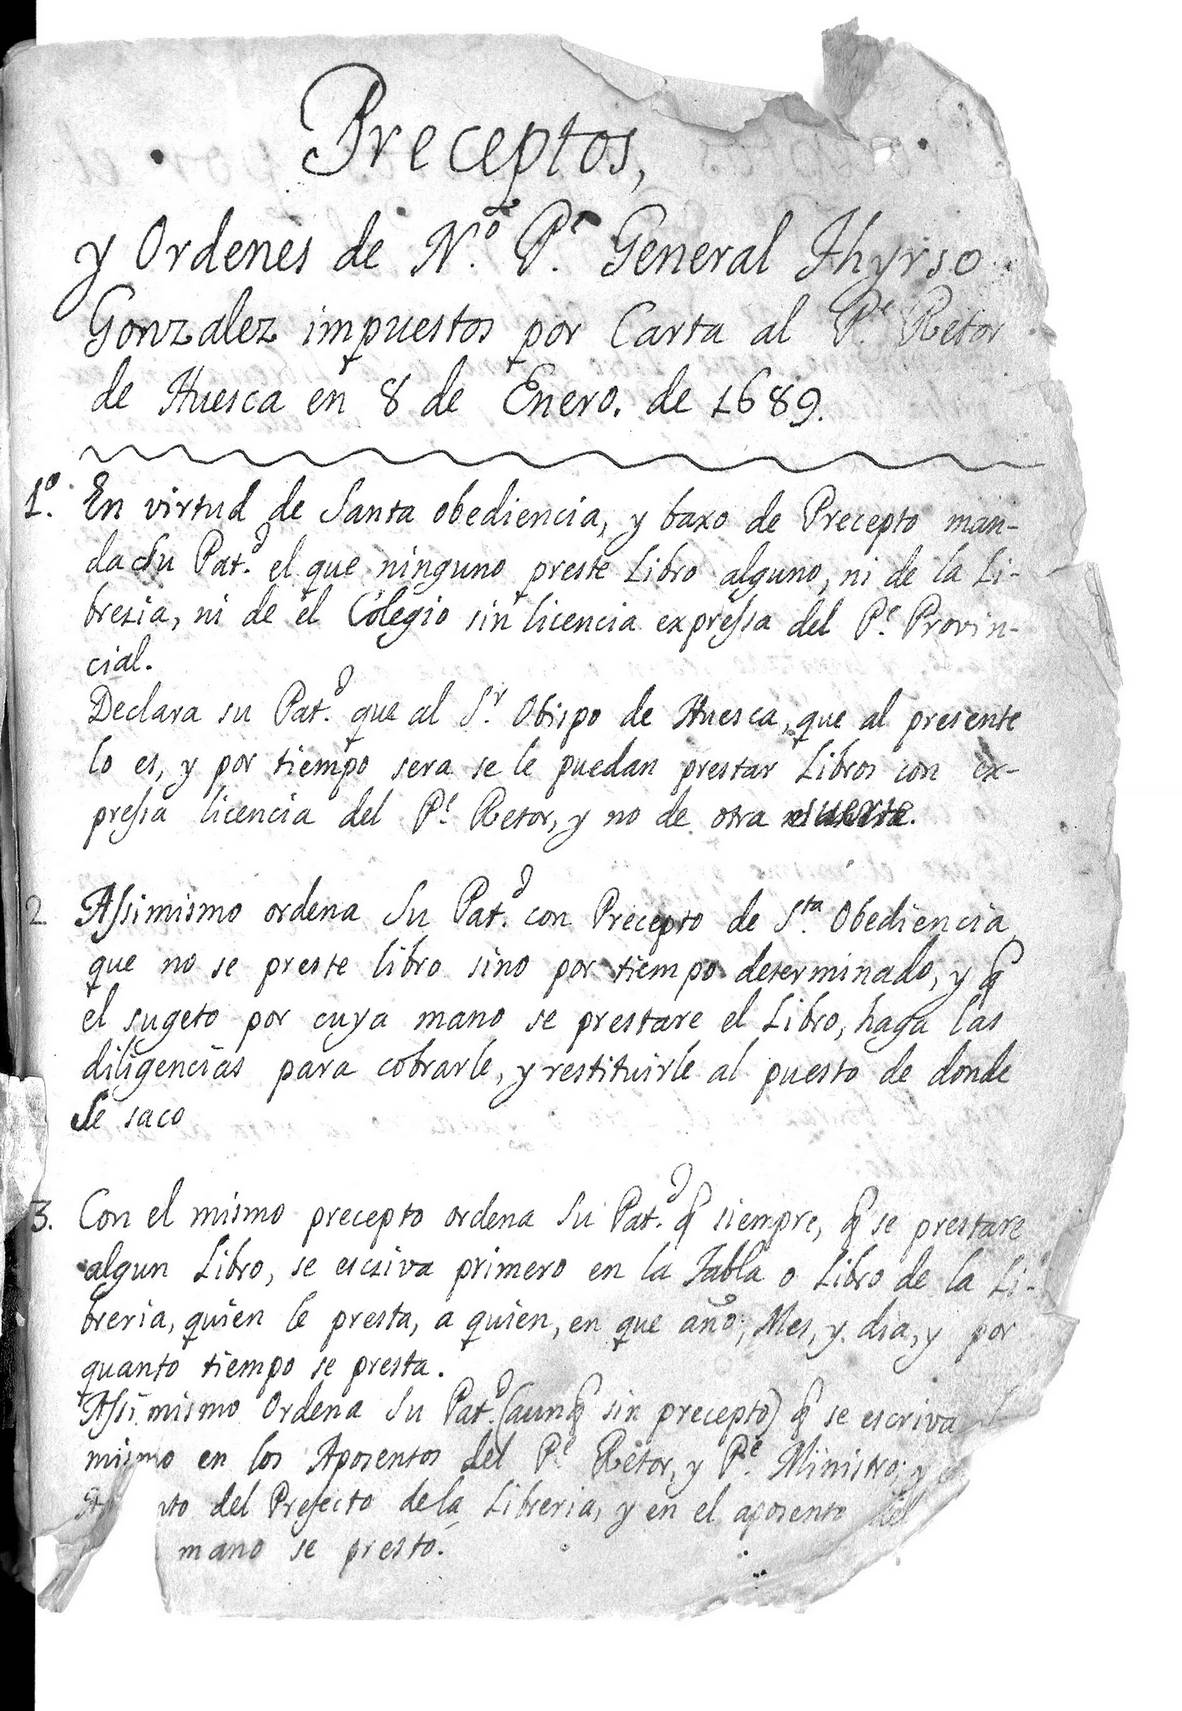 Preceptos,
y Ordenes de Nº. Pe. General Thyrso
Gonzalez impuestos por Carta al Pe. Retor
de Huesca en 8 de Enero. de 1689.
1º. En virtud de Santa obediencia, y baxo de Precepto man-
da Su Patd. el que ninguno preste Libro alguno, ni de la Li-
breria, ni de el Colegio sin licencia expressa del Pe. Provin-
cial.
Declara su Patd. que al Sr. Obispo de Huesca, que al presente
lo es, y por tiempo sera se le puedan prestar Libros con ex-
pressa licencia del Pe. Retor, y no de otra suerte.
2 Assimismo ordena Su Patd. con Precepto de Sta. Obediencia
que no se preste libro sino por tiempo determinado, y q̃
el sugeto por cuya mano se prestare el Libro, haga las
diligencias para cobrarle, y restituirle al puesto de donde
se saco
3. Con el mismo precepto ordena Su Patd. q̃ siempre, q̃ se prestare
algun Libro, se escriva primero en la Tabla o Libro de la Li-
breria, quien le presta, a quien, en que año, Mes, y dia, y por
quanto tiempo se presta.
Assimismo Ordena Su Patd. (aunq̃ sin precepto) q̃ se escriva
mismo en los Aposentos del Pe. Retor, y Pe. Ministro, y
del Prefecto de la Libreria, y en el aposento del
mano se prestó.